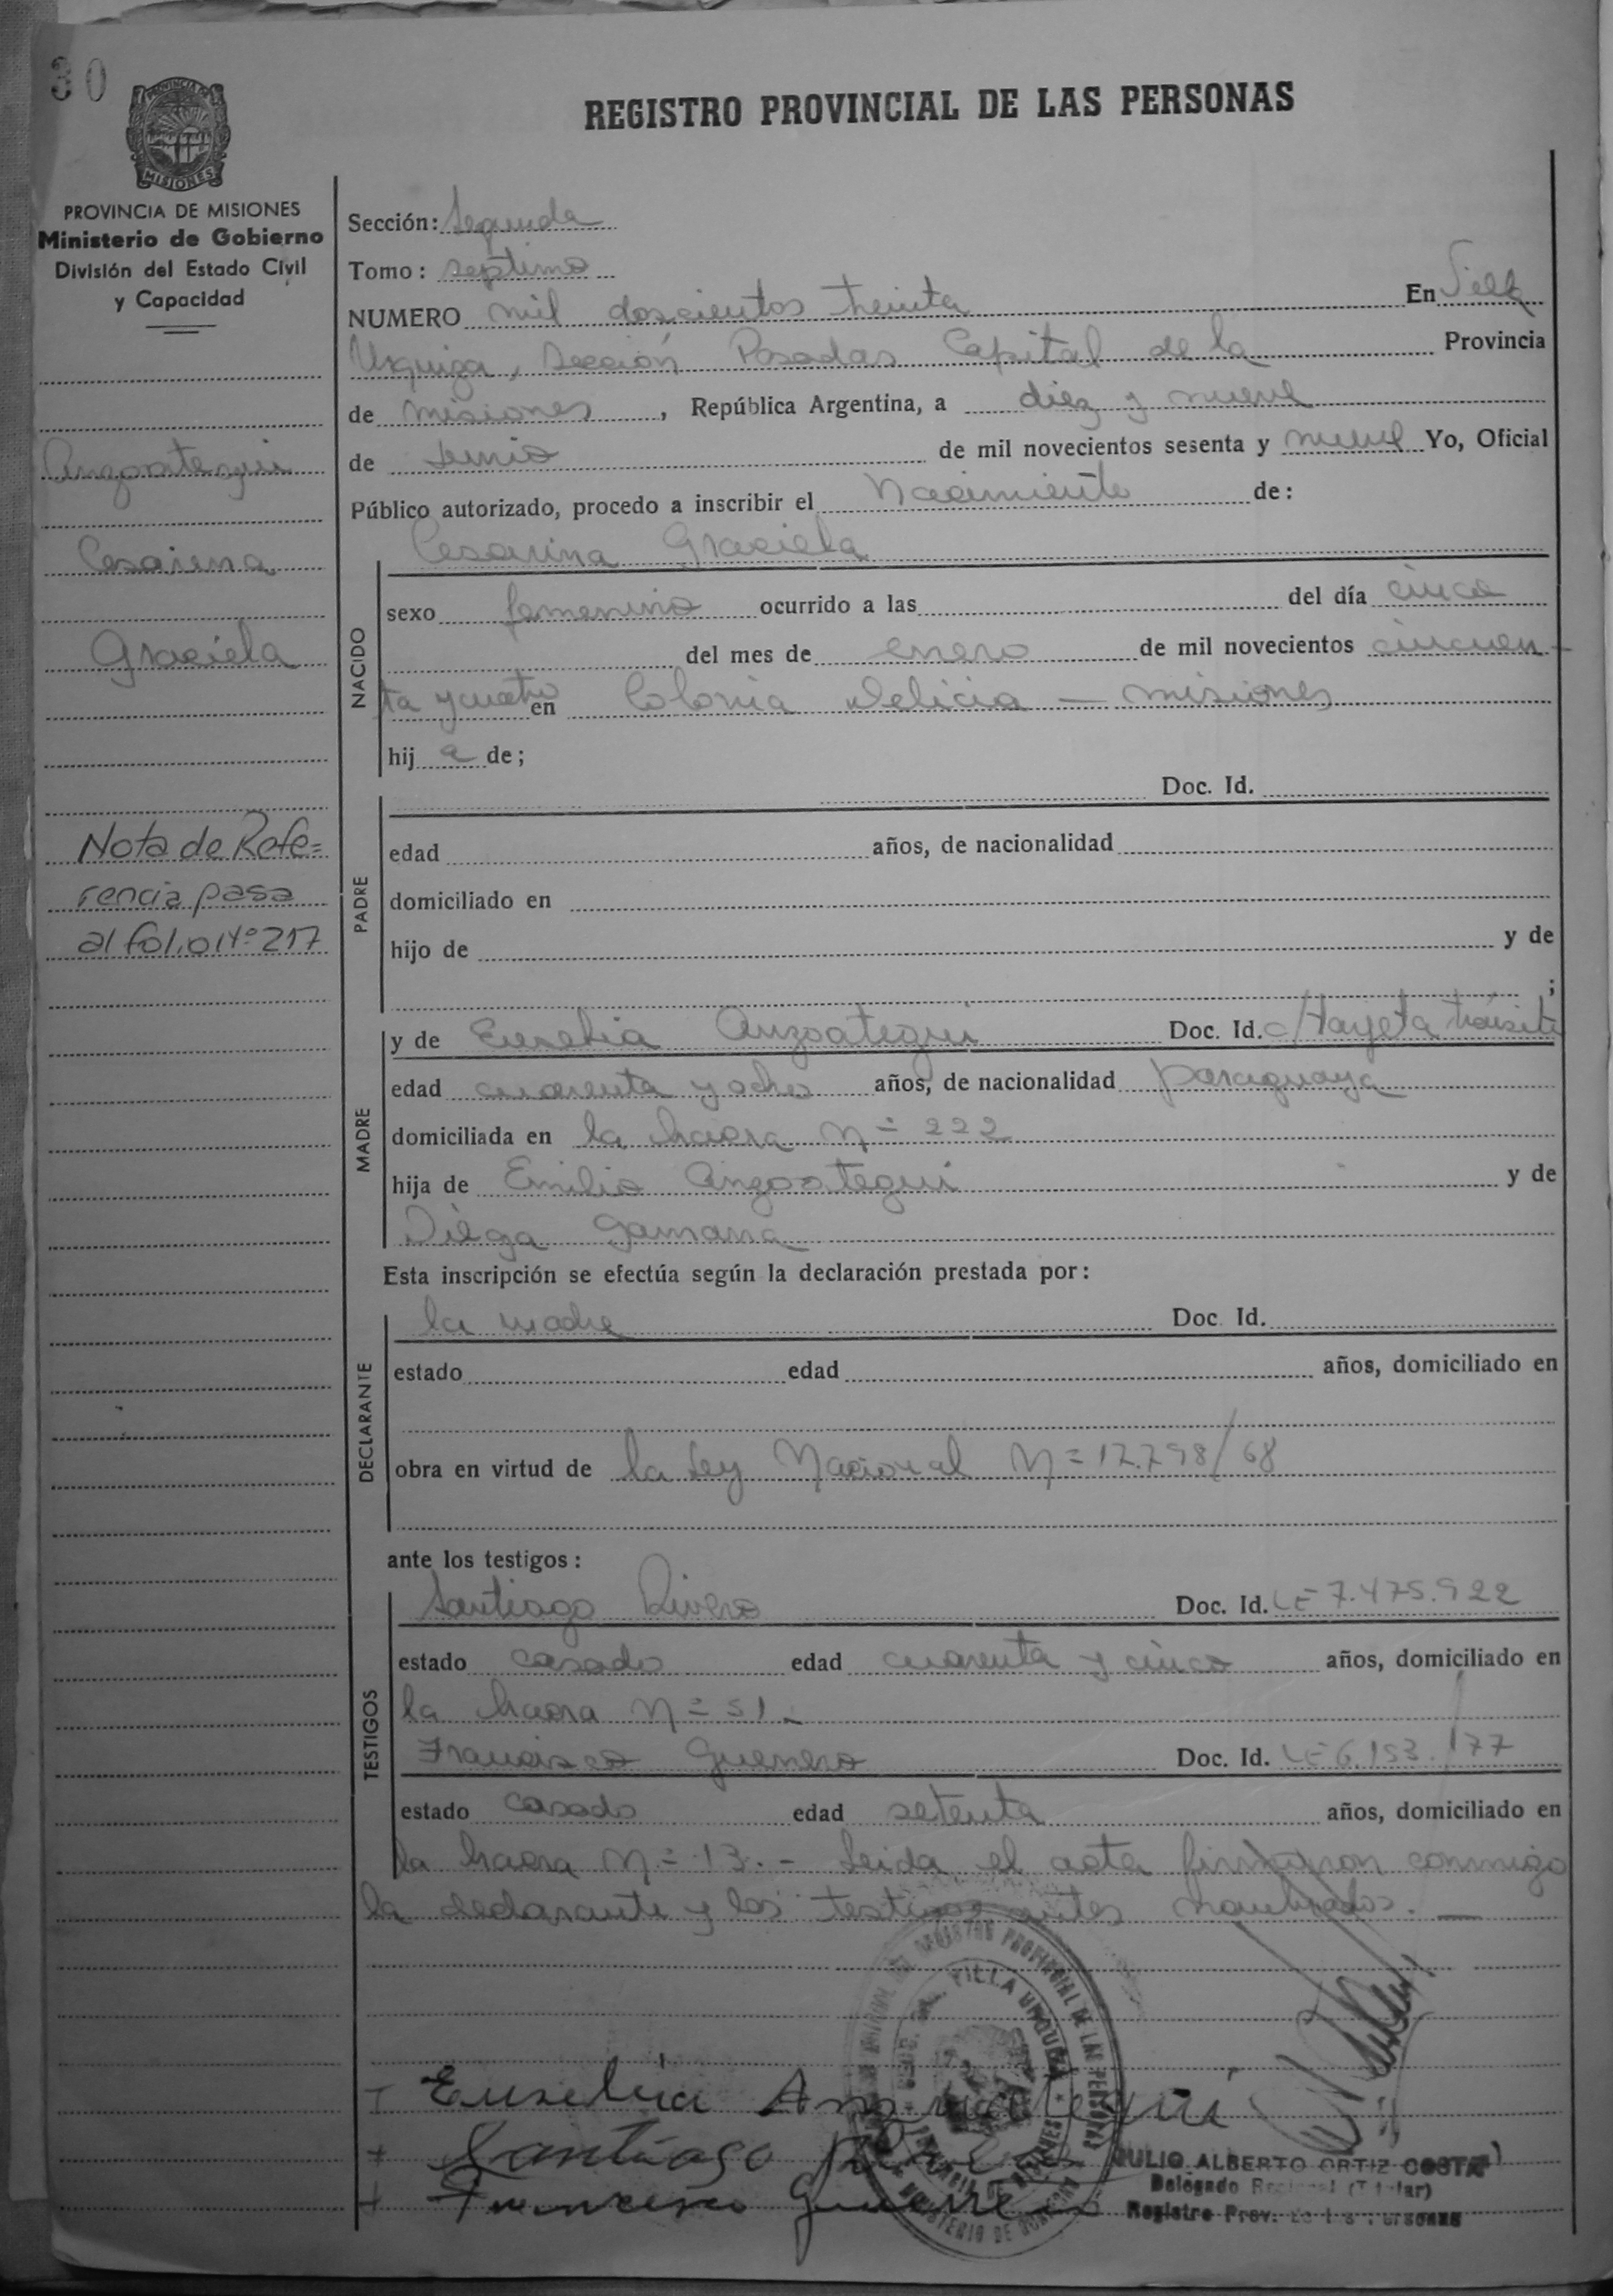 30
REGISTRO PROVINCIAL DE LAS PERSONAS
PROVINCIA DE
MISIONES
PROVINCIA DE MISIONES
Ministerio de Gobierno
División del Estado Civil
y Capacidad
Anzoategui
Cesarina
Graciela
Nota de Refe=
rencia pasa
al folio Nº 217
Sección: Segunda
Tomo: septimo
NUMERO mil doscientos treinta En Villa
Urquiza, Sección Posadas Capital de la Provincia
de Misiones, República Argentina, a diez y nueve
de Junio de mil novecientos sesenta y nueve Yo, Oficial
Público autorizado, procedo a inscribir el Nacimiento de:
Cesarina Graciela
NACIDO
sexo femenino ocurrido a las del día cinco
del mes de enero de mil novecientos cincuen-
ta y cuatro en Colonia Delicia - Misiones
hija de;
PADRE
Doc. Id.
edad años, de nacionalidad
domiciliado en
hijo de y de
;
MADRE
y de Eusebia Anzoategui Doc. Id. c/tarjeta tránsito
edad cuarenta y ocho años, de nacionalidad paraguaya
domiciliada en la chacra Nº 222
hija de Emilio Anzoategui y de
Diega Gamarra
Esta inscripción se efectúa según la declaración prestada por:
DECLARANTE
la madre Doc. Id.
estado edad años, domiciliado en
obra en virtud de la Ley Nacional Nº 17.798/68
ante los testigos:
TESTIGOS
Santiago Rivero Doc. Id. LE 7.475.922
estado casado edad cuarenta y cinco años, domiciliado en
la chacra Nº 51.-
Francisco Guerrero Doc. Id. LE 6.153.177
estado casado edad setenta años, domiciliado en
la chacra Nº 13.- Leida el acta firmaron conmigo
la declarante y los testigos antes nombrados.—
VILLA URQUIZA
REGISTRO PROVINCIAL DE LAS PERSONAS
PROVINCIA DE MISIONES
MINISTERIO DE GOBIERNO
+ Eusebia Anzoategui
+ Santiago Rivero
+ Francisco Guerrero
JULIO ALBERTO ORTIZ COSTA
Delegado Regional (Titular)
Registro Prov. de las Personas